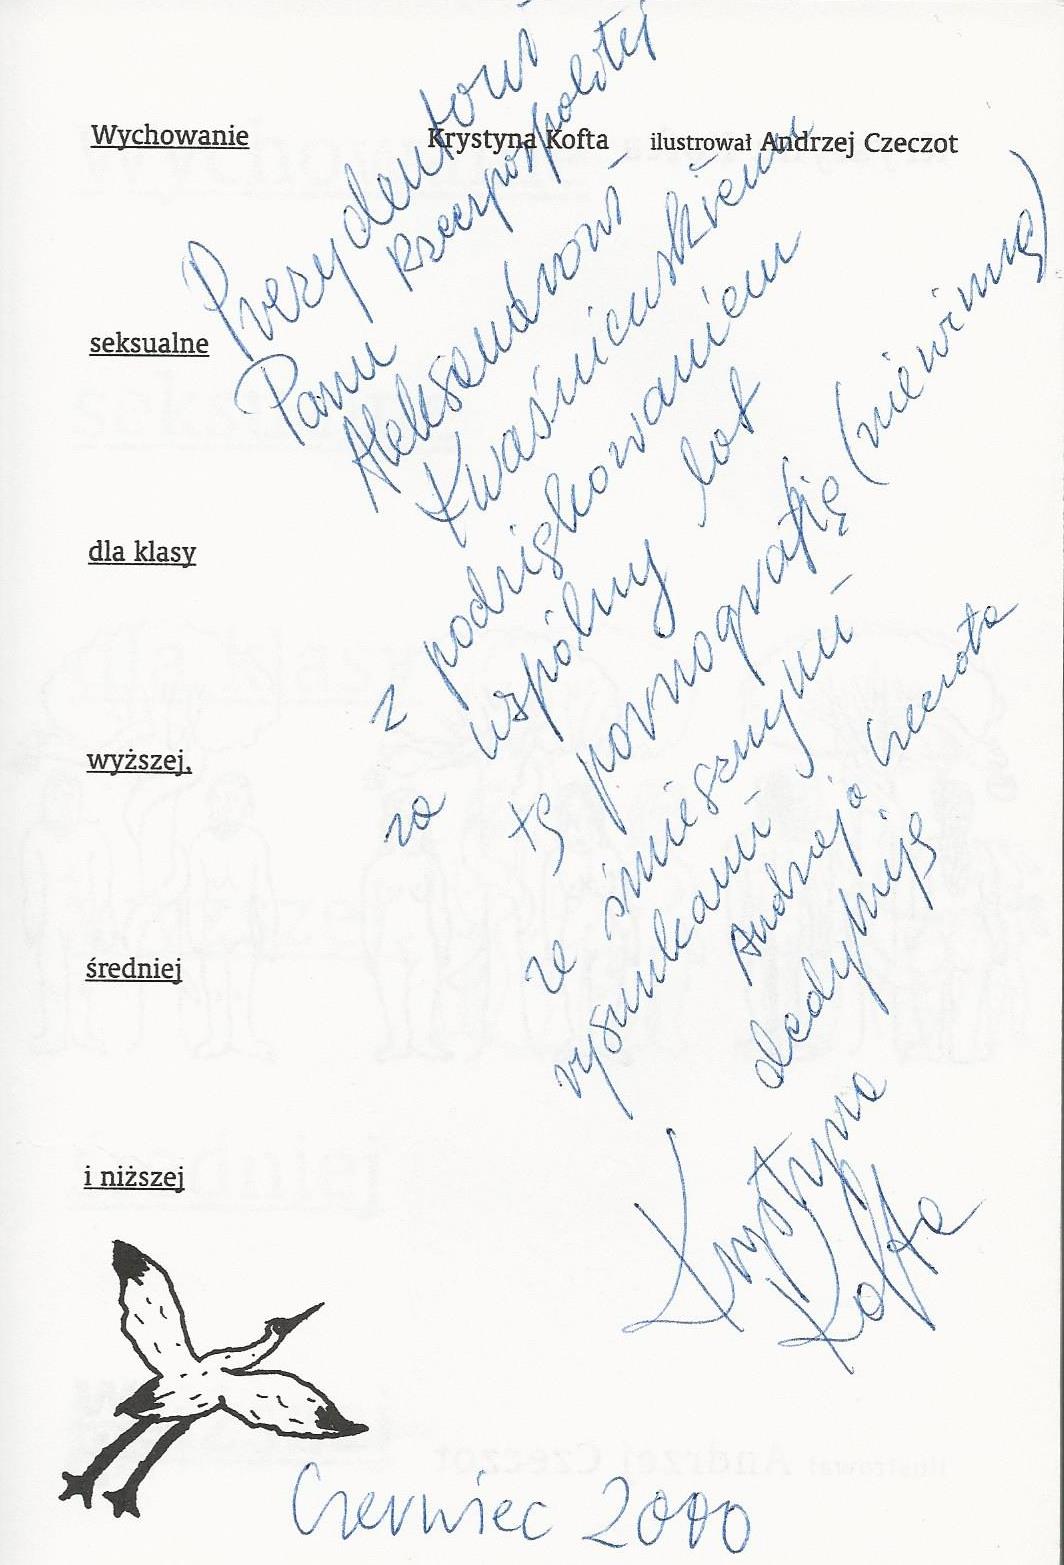 Wychowanie
Krystyna Kofta ilustrował Andrzej Czeczot
seksualne
dla klasy
wyższej,
średniej
i niższej
Prezydentowi
Rzeczpospolitej
Panu
Aleksandrowi
Kwaśniewskiemu
z podziękowaniem
za wspólny lot
tę pornografię (niewinną)
ze śmiesznymi
rysunkami
Andrzeja Czeczota
dedykuję
Krystyna
Kofta
Czerwiec 2000